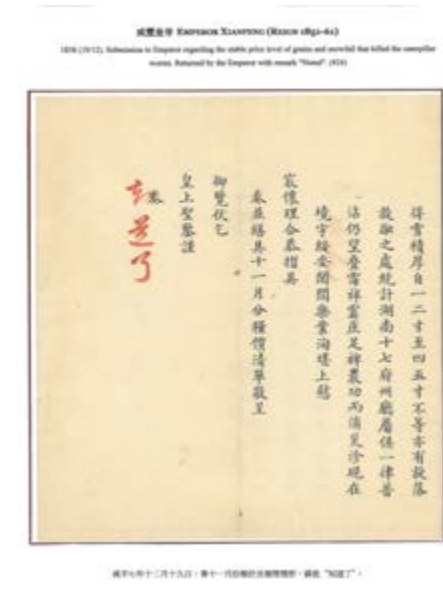 咸豐皇帝 EMPEROR XIANFENG (REIGN 1851-61)
1858 (19/12). Submission to Emperor regarding the stable price level of grains and snowfall that killed the caterpillar
worms. Returned by the Emperor with remark "Noted". (#24)
得雪積厚自一二寸至四五寸不等亦有旋落
旋融之處統計湖南十七府州廳屬俱一律普
沾仍望疊霈祥霙庶足裨農功而消災沴現在
境宇綏安閭閻樂業洵堪上慰
宸懷理合恭摺具
奏並繕具十一月分糧價清單敬呈
御覽伏乞
皇上聖鑒謹
奏
知道了
咸豐七年十二月十九日，奏十一月份糧價 "知道了"。